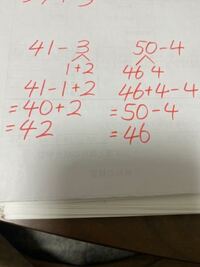 41-3
1+2
41-1+2
=40+2
=42
50-4
46 4
46+4-4
=50-4
=46